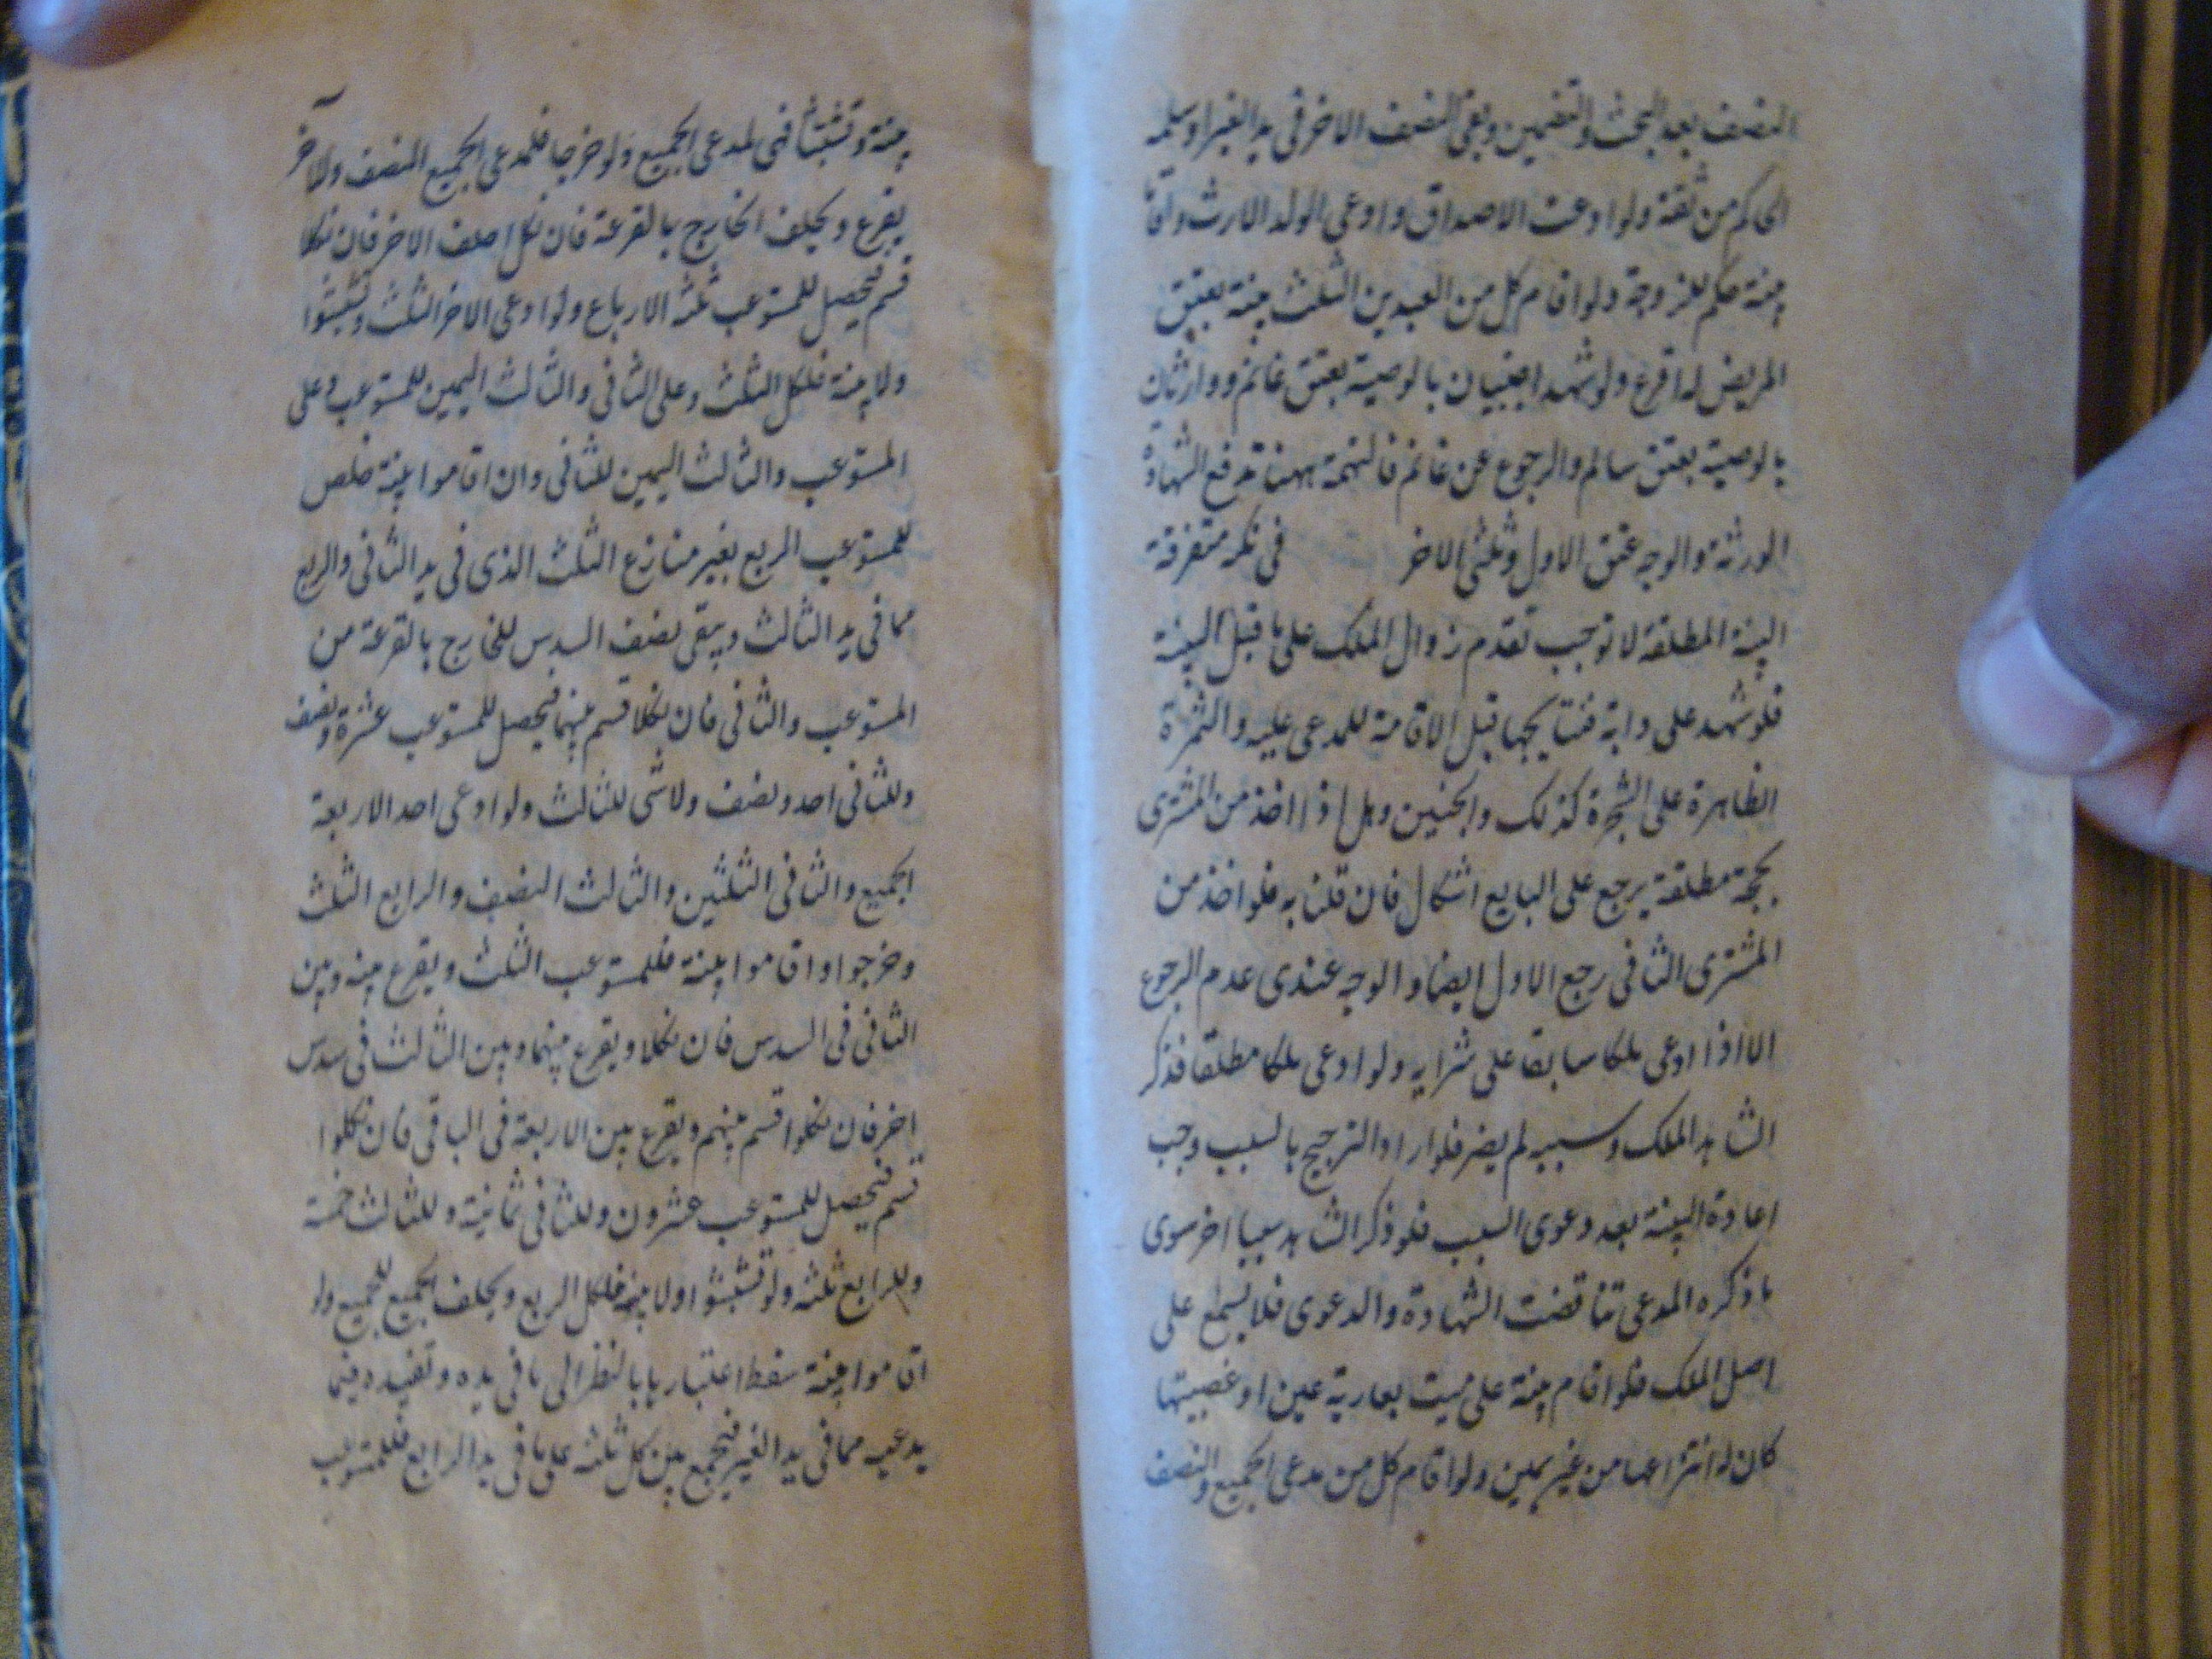 النصف بعد البحث والتضمين وبقى النصف الاخر فى يد الغير او سلمه
الحاكم من ثقة ولو ادعت الاصداق وادعى الولد الارث واقا
بينة حكم للزوجة ولو اقام كل من العبدين الثلث بينة بعتق
المريض له اقرع ولو شهد اجنبيان بالوصية بعتق غانم ووارثان
بالوصية بعتق سالم والرجوع عن غانم فالتهمة ههنا تدفع الشهادة
الورثة والوجه عتق الاول وثلثى الاخر فى نكه متفرقة
البينة المطلقة لا توجب تقدم زوال الملك على ما قبل البينة
فلو شهد على دابة فنتايجها قبل الاقامة للمدعى عليه والثمرة
الظاهرة على الشجرة كذلك والجنين وهل اذا اخذ من المشترى
بحجة مطلقة يرجع على البايع اشكال فان قلنا به فلو اخذ من
المشترى الثانى رجع الاول ايضا والوجه عندى عدم الرجوع
الا اذا ادعى ملكا سابقا على شرايه ولو ادعى ملكا مطلقا فذكر
الشاهد الملك وسببه لم يضر فلو اراد الترجيح بالسبب وجب
اعادة البينة بعد دعوى السبب فلو ذكر الشاهد سببا اخر سوى
ما ذكره المدعى تناقضت الشهادة والدعوى فلا يسمع على
اصل الملك فلو اقام بينة على ميت بعارية عين او غصبيتها
كان له انتزاعها من غير يمين ولو اقام كل من مدعى الجميع والنصف
بينة وتشبثا فهى لمدعى الجميع ولو خرجا فلمدعى الجميع النصف والآخر
يقرع ويحلف الخارج بالقرعة فان نكل احلف الاخر فان نكلا
قسم فيحصل للمستوعب ثلثة الارباع ولو ادعى الاخر الثلث وتشبثوا
ولا بينة فلكل الثلث وعلى الثانى والثالث اليمين للمستوعب وعلى
المستوعب والثالث اليمين للثانى وان اقاموا بينة خلص
للمستوعب الربع بغير منازع الثلث الذى فى يد الثانى والربع
مما فى يد الثالث ويبقى نصف السدس للخارج بالقرعة من
المستوعب والثانى فان نكلا قسم بينهما فيحصل للمستوعب عشرة ونصف
وللثانى احد ونصف ولا شى للثالث ولو ادعى احد الاربعة
الجميع والثانى الثلثين والثالث النصف والرابع الثلث
وخرجوا واقاموا بينة فللمستوعب الثلث ويقرع بينه وبين
الثانى فى السدس فان نكلا ويقرع بينهما وبين الثالث فى سدس
اخر فان نكلوا قسم بينهم ويقرع بين الاربعة فى الباقى فان نكلوا
قسم فيحصل للمستوعب عشرون وللثانى ثمانية وللثالث خمسة
وللرابع ثلثه ولو تشبثوا ولا بينة فلكل الربع ويحلف الجميع للجميع ولو
اقاموا بينة سقط اعتبارها بالنظر الى ما فى يده وتفيده فيما
يدعيه مما فى يد الغير فيجمع بين كل ثلثه على ما فى يد الرابع فللمستوعب